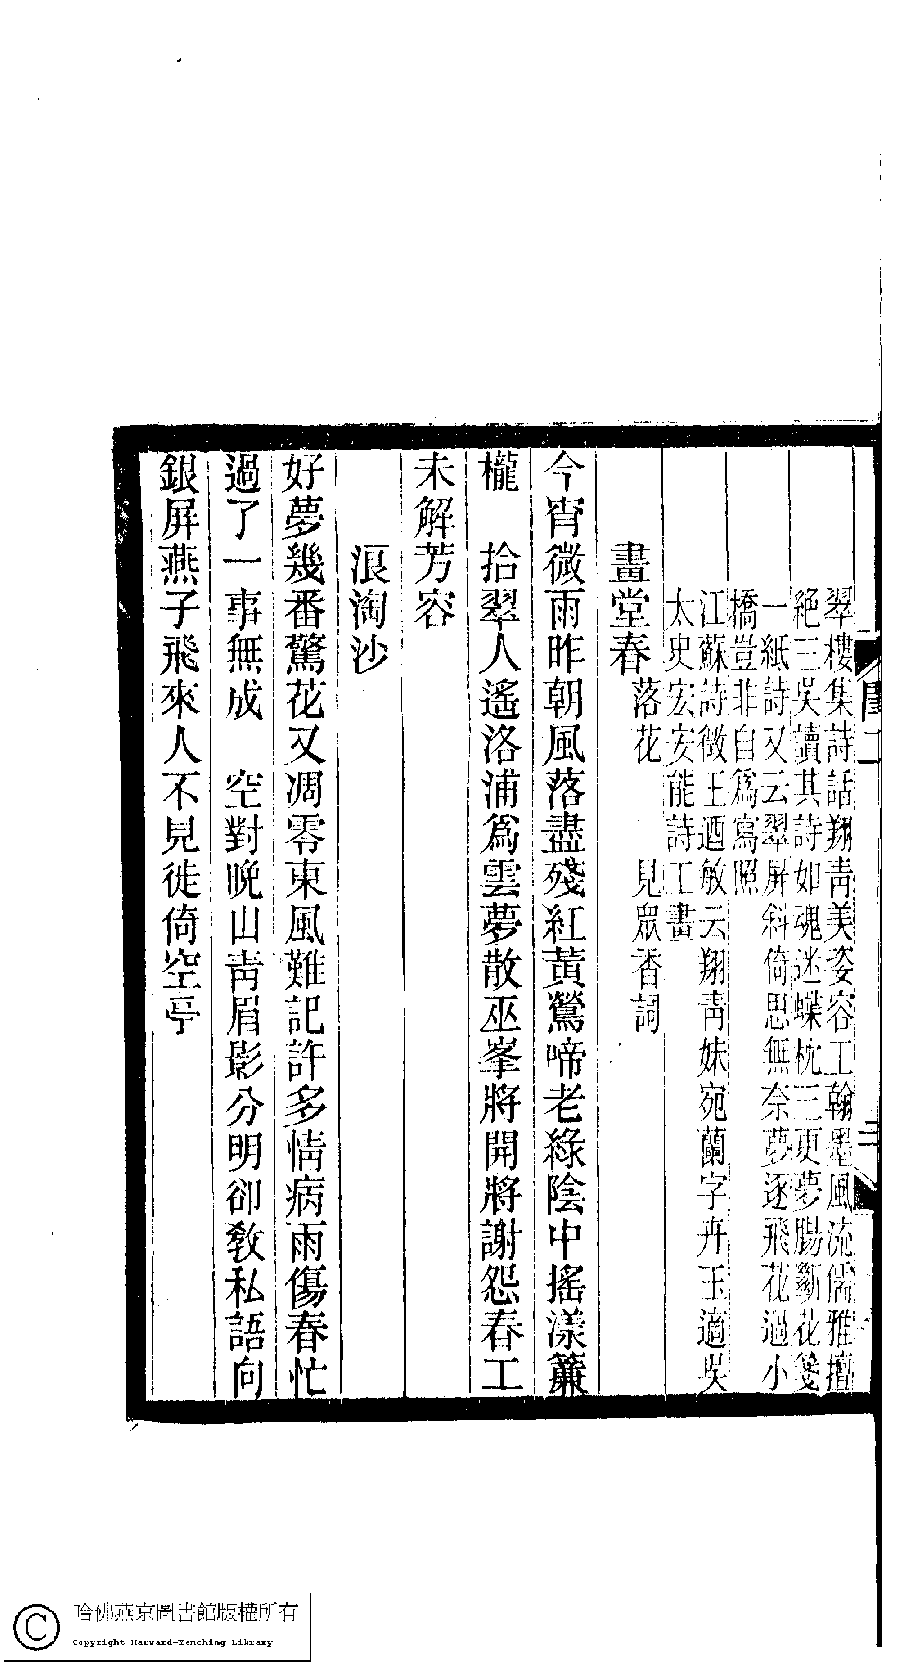 翠樓集詩話翔青美姿容工翰墨風流儒雅擅
絕三吳讀其詩如魂迷蝶枕三更夢腸斷花箋
一紙詩又云翠屏斜倚思無奈夢逐飛花過小
橋豈非自爲寫照
江蘇詩徵王迺敏云翔青妹宛蘭字卉玉適吳
太史宏安能詩工畫
畫堂春落花 見眾香詞
今宵微雨昨朝風落盡殘紅黃鶯啼老綠陰中搖漾簾
櫳 拾翠人遙洛浦爲雲夢散巫峯將開將謝怨春工
未解芳容
浪淘沙
好夢幾番驚花又凋零東風難記許多情病雨傷春忙
過了一事無成 空對晚山青眉影分明卻敎私語向
銀屏燕子飛來人不見徒倚空亭
哈佛燕京圖書館版權所有
Copyright Harvard-Yenching Library